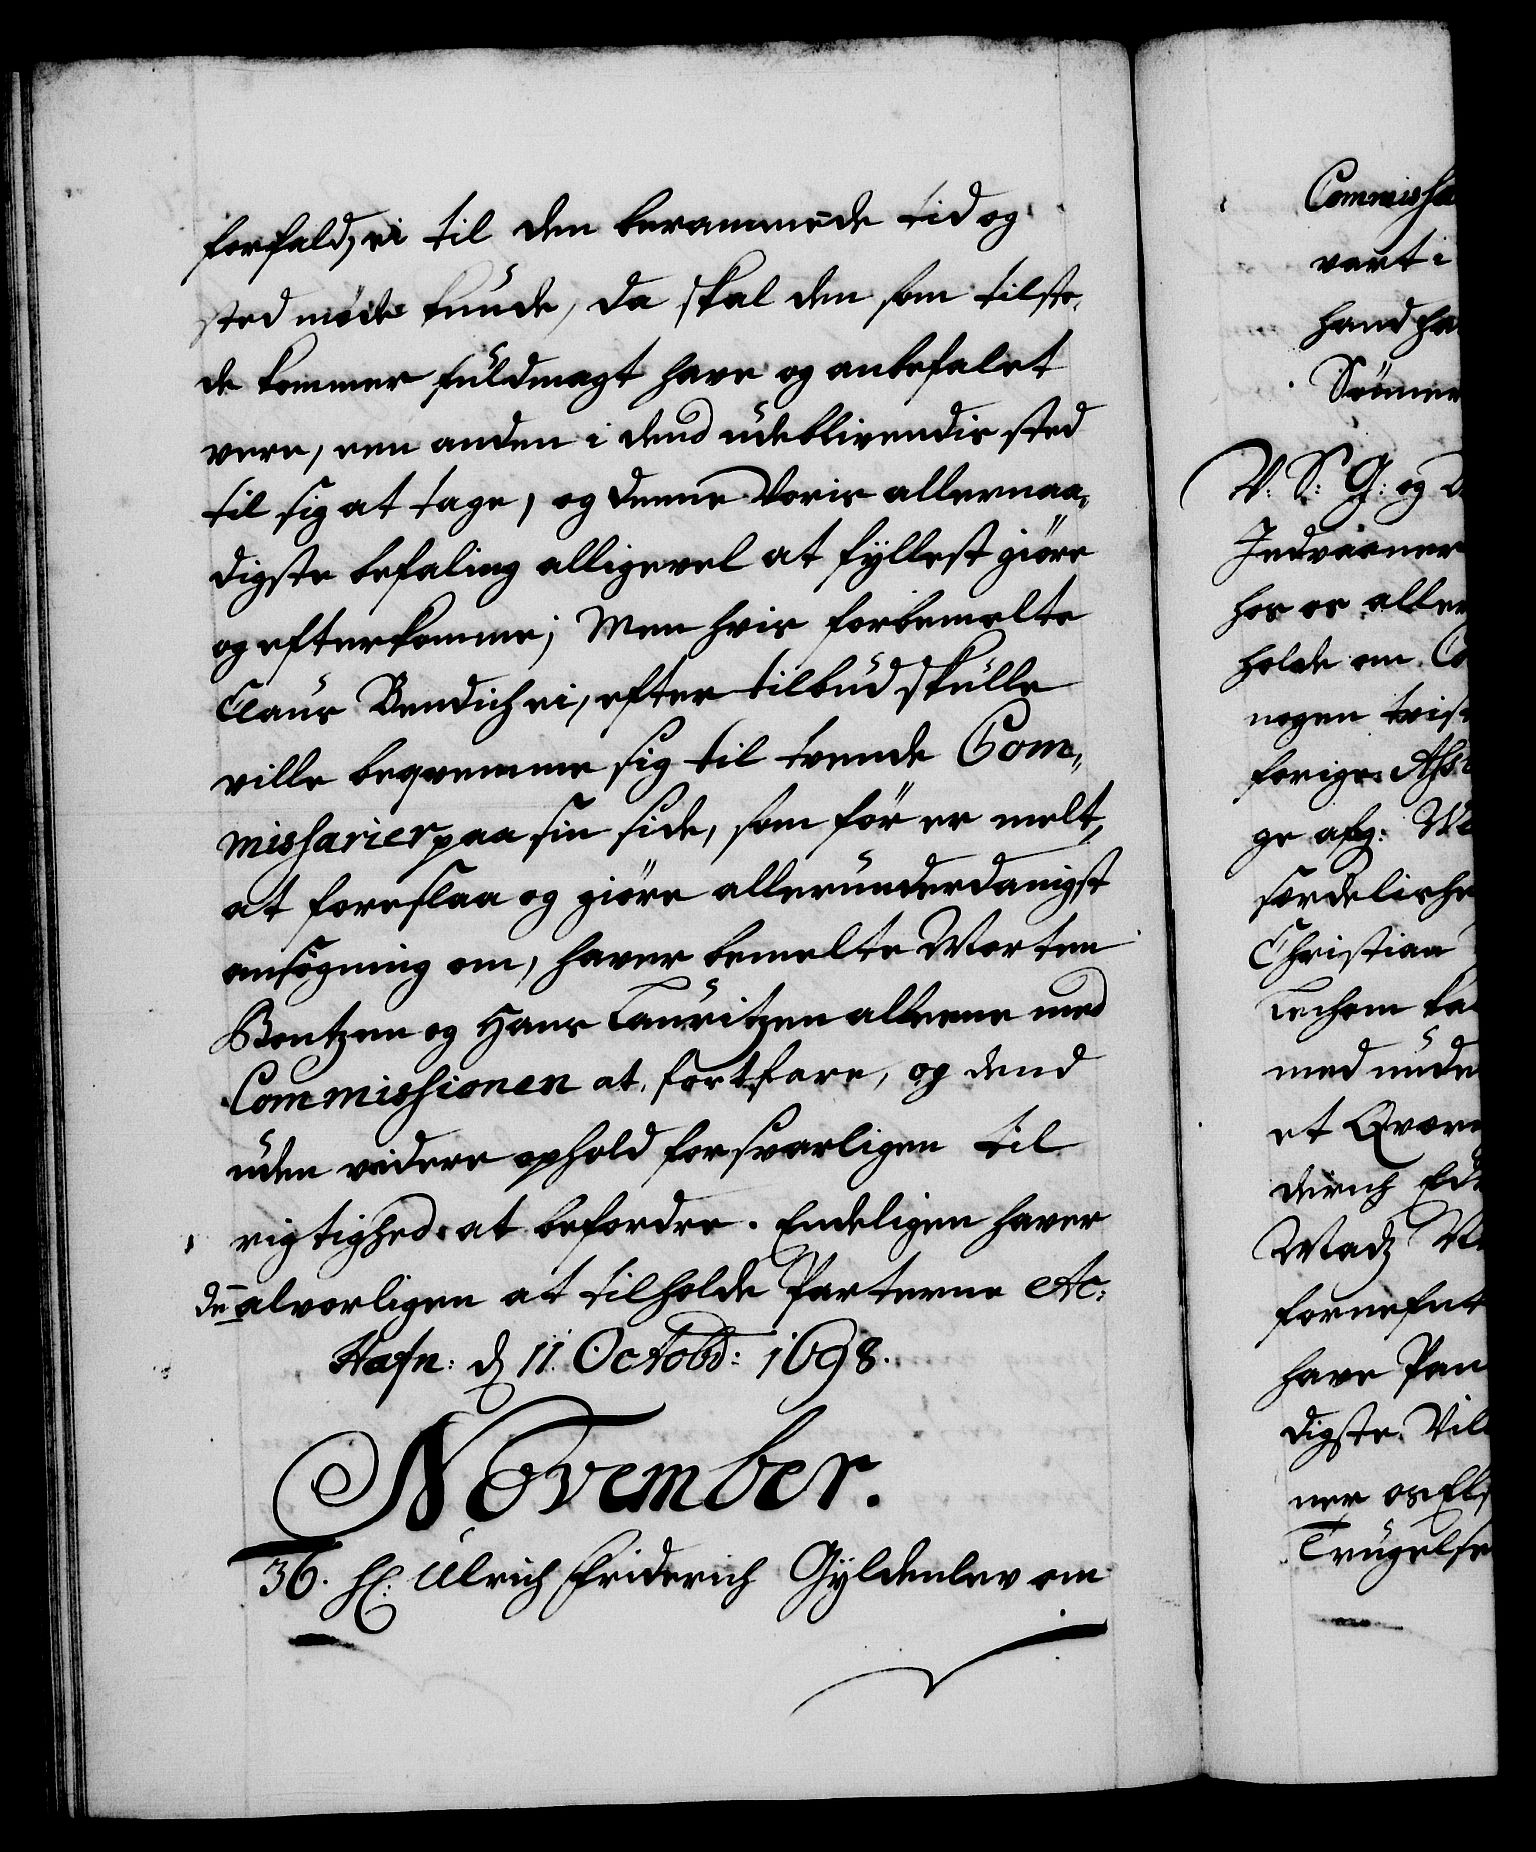 forfald, ei til den berammede tid og
sted møde kunde, da skal den som tilste,
de kommer fuldmagt have og anbefalet
vere, een anden i dend udeblivendis sted
til sig at tage, og denne Voris allernaa,
digste befaling alligevel at fyllestgiøre
og efterkomme; Men hvis forbemelte
Claus Bendich ei, efter tilbud skulle
ville beqvemme sig til tvende Com„
missarier paa sin side, som før er melt,
at foreslaa og giøre allerunderdanigst
ansøgning om, haver bemelte Morten
Bentzen og Hans Lauritzen alleene med
Commissionen at fortfare, og dend
uden videre ophold forsvarligen til
rigtighed at befordre. Endeligen haver
de alvorligen at tilholde Parterne etc:
Hafn: d 11 Octobr: 1698.
November.
36. H: Ulrich Friderich Gyldenlev om
Commissa
vert i
hand ha
Sønner
V: S: G: og
Indvaaner
hos os aller
holde om Co
nogen tvist
forige Ass
ge afg:
særdelishe
Christian
med unde
et Qværn
derich
Madz
fornefnt
have Pan
digste Vil
ner os
Trugelse